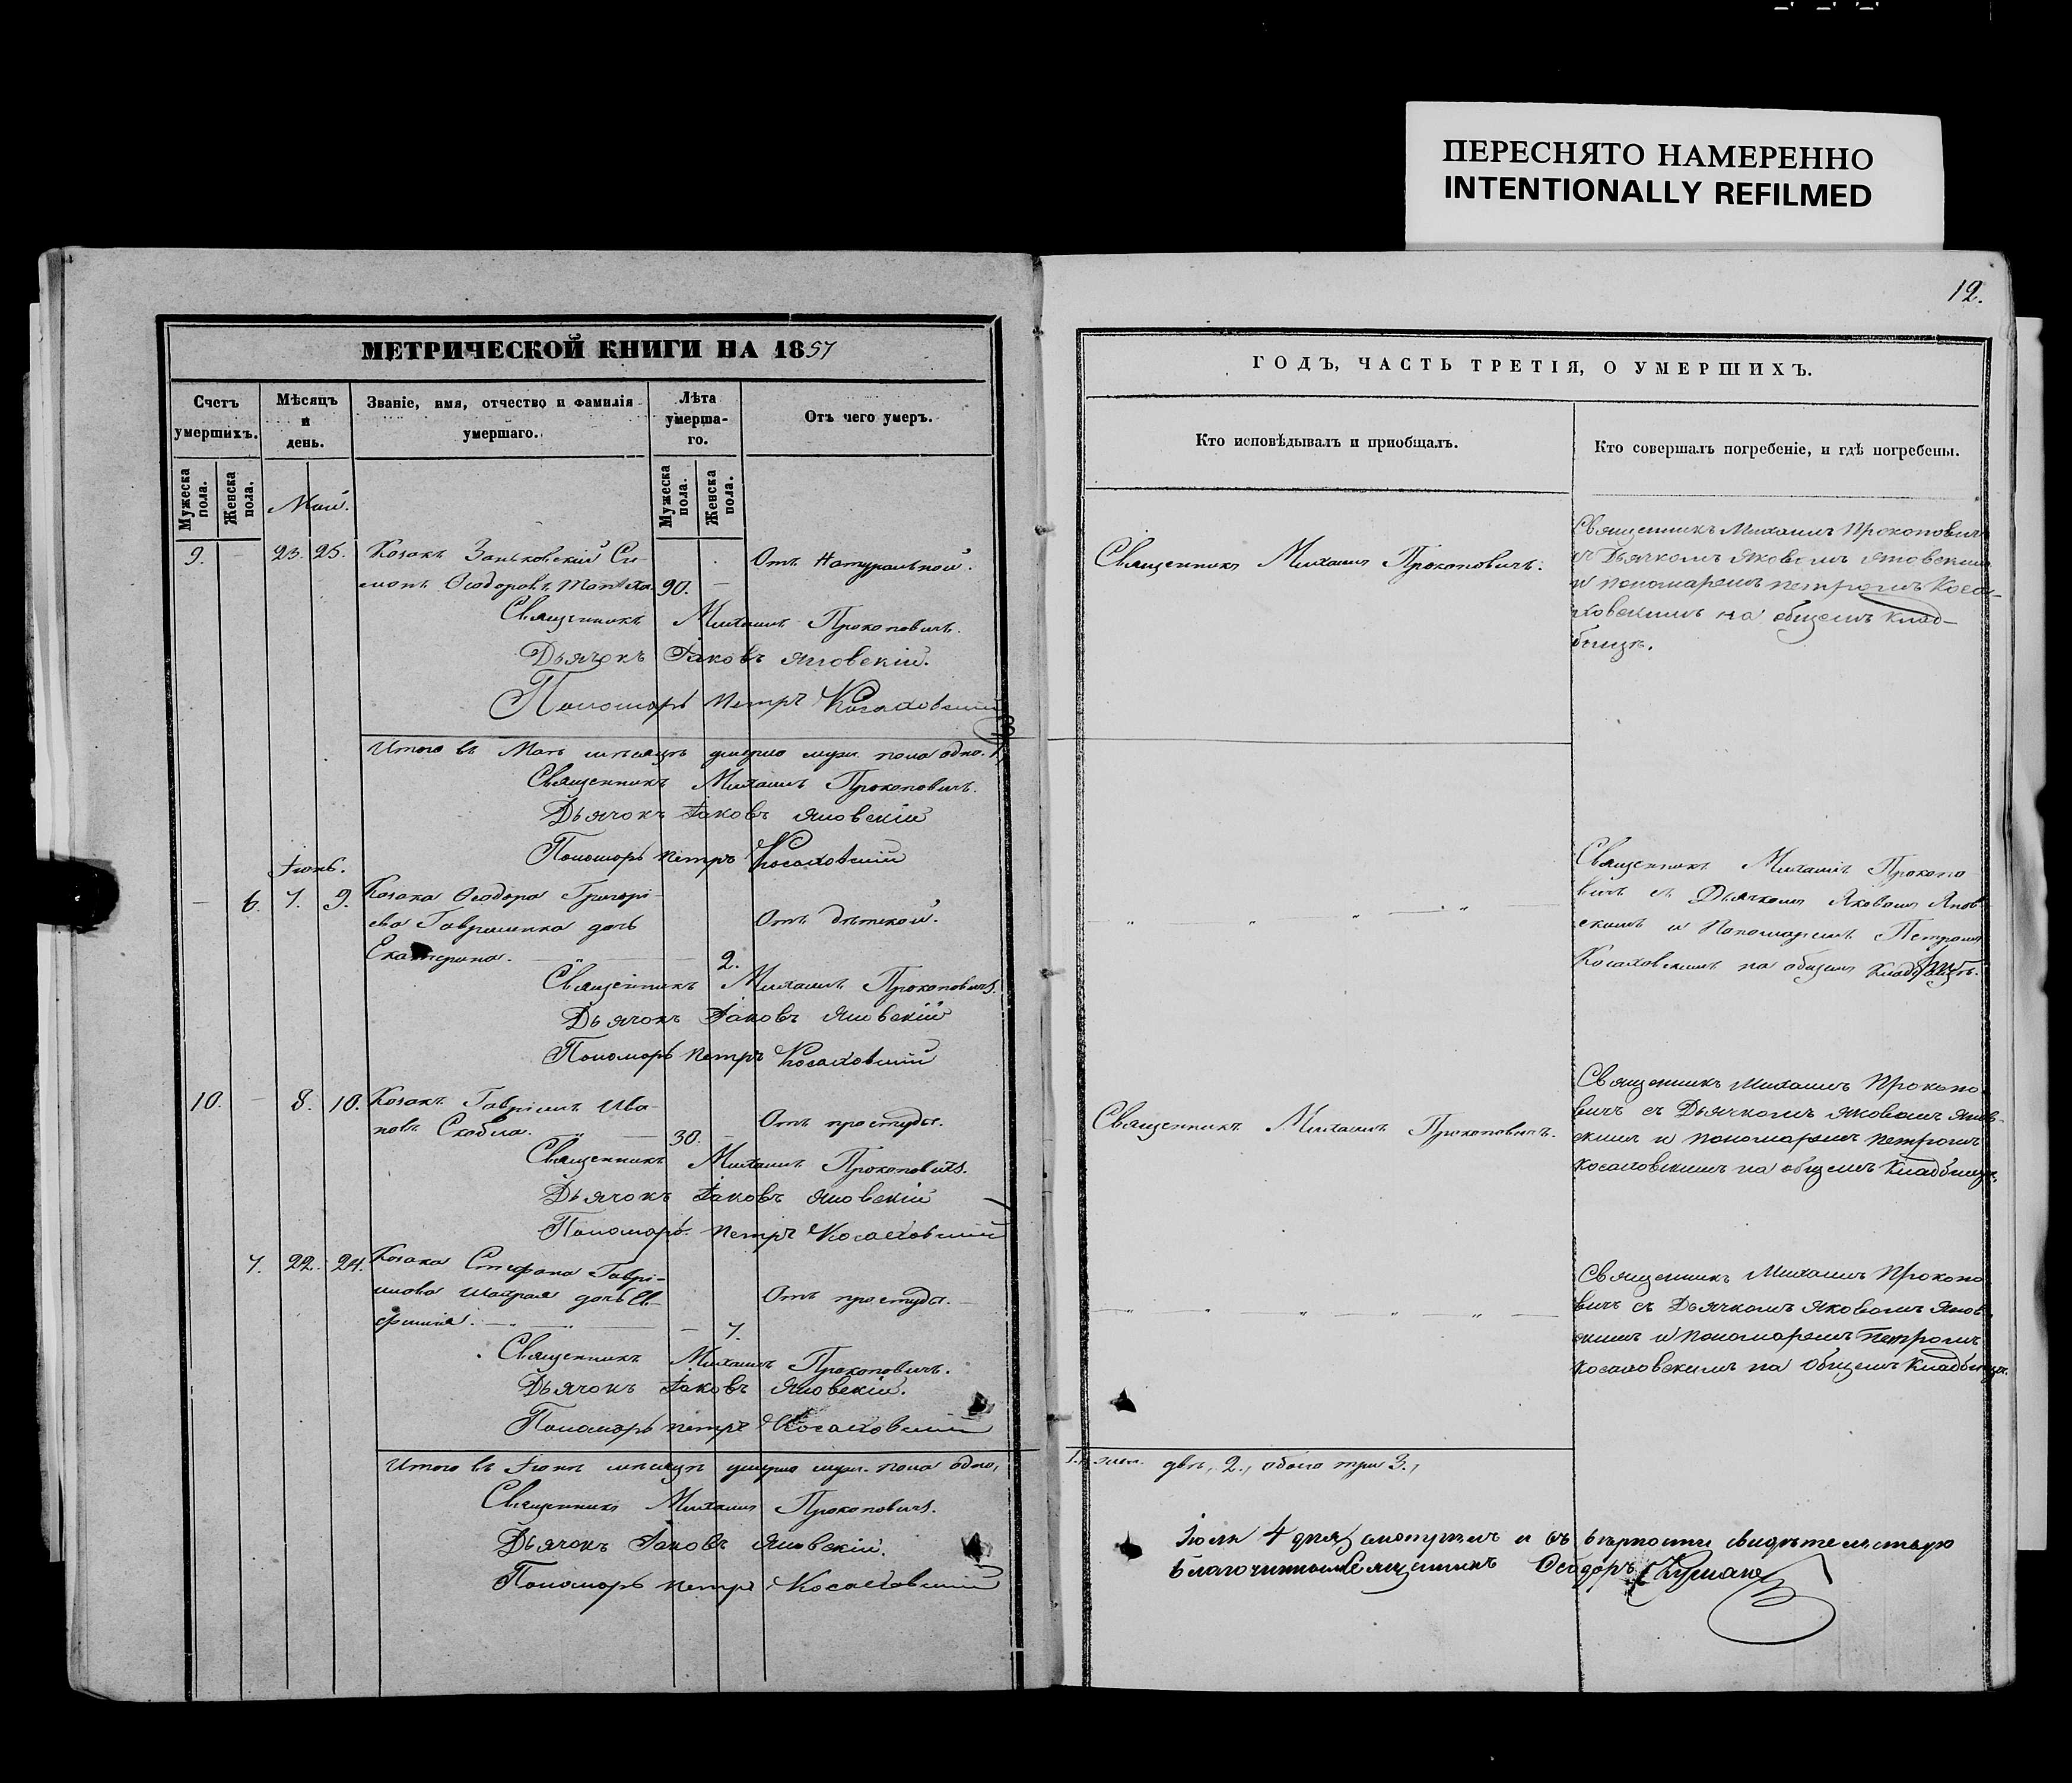 ПЕРЕСНЯТО НАМЕРЕННО
INTENTIONALLY REFILMED
12.
МЕТРИЧЕСКОЙ КНИГИ НА 1857
Счетъ умершихъ.
Мужеска пола.
Женска пола.
Мѣсяцъ и день.
Званіе, имя, отчество и фамилія умершаго.
Лѣта умерша-го.
Мужеска пола.
Женска пола.
Отъ чего умеръ.
Май.
9. — 23. 25. Козакъ Заньковскій Си-
монъ Ѳеодоровъ 90. —
Отъ натуральной.
Священникъ Михаилъ Прокоповичъ.
Дьячокъ Іаковъ Яновскій.
Пономарь Петръ Косаховскій
Итого въ Маѣ мѣсяцѣ умерло муж. пола одно. 1,
Священникъ Михаилъ Прокоповичъ.
Дьячокъ Іаковъ Яновскій
Пономарь Петръ Косаховскій
Іюнь.
— 6. 7. 9. Козака Ѳеодора Григорі-
ева Гавриленка дочь
Екатерина. — 2.
Отъ дѣтской.
Священникъ Михаилъ Прокоповичъ.
Дьячокъ Іаковъ Яновскій
Пономарь Петръ Косаховскій
10. — 8. 10. Козакъ Гавріилъ Ива-
новъ Скобла. 30. —
Отъ простуды.
Священникъ Михаилъ Прокоповичъ.
Дьячокъ Іаковъ Яновскій
Пономарь Петръ Косаховскій
7. 22. 24. Козака Стефана Гаврі-
илова дочь Ев-
фимія. — 7.
Отъ простуды.
Священникъ Михаилъ Прокоповичъ.
Дьячокъ Іаковъ Яновскій.
Пономарь Петръ Косаховскій
Итого въ Іюнѣ мѣсяцѣ умерло муж. пола одно,
Священникъ Михаилъ Прокоповичъ.
Дьячокъ Іаковъ Яновскій.
Пономарь Петръ Косаховскій
ГОДЪ, ЧАСТЬ ТРЕТІЯ, О УМЕРШИХЪ.
Кто исповѣдывалъ и пріобщалъ.
Кто совершалъ погребеніе, и гдѣ погребены.
Священникъ Михаилъ Прокоповичъ.
Священникъ Михаилъ Прокоповичъ
съ Дьячкомъ Яковомъ Яновскимъ
и пономаремъ Петромъ Коса-
ховскимъ на общемъ клад-
бищѣ.
Священникъ Михаилъ Прокопо
вичъ съ Дьячкомъ Яковомъ Янов
скимъ и Пономаремъ Петромъ
Косаховскимъ на общемъ кладбищѣ.
Священникъ Михаилъ Прокоповичъ.
Священникъ Михаилъ Прокопо
вичъ съ Дьячкомъ Яковомъ Янов-
скимъ и пономаремъ Петромъ
Косаховскимъ на общемъ кладбищѣ.
Священникъ Михаилъ Прокопо
вичъ съ Дьячкомъ Яковомъ Янов
скимъ и пономаремъ Петромъ
Косаховскимъ на общемъ кладбищѣ.
1. жен. двѣ, 2., обоего три 3.,
Іюля 4 дня смотрѣлъ и въ вѣрности свидѣтельствую
Благочинный Священникъ Ѳеодоръ